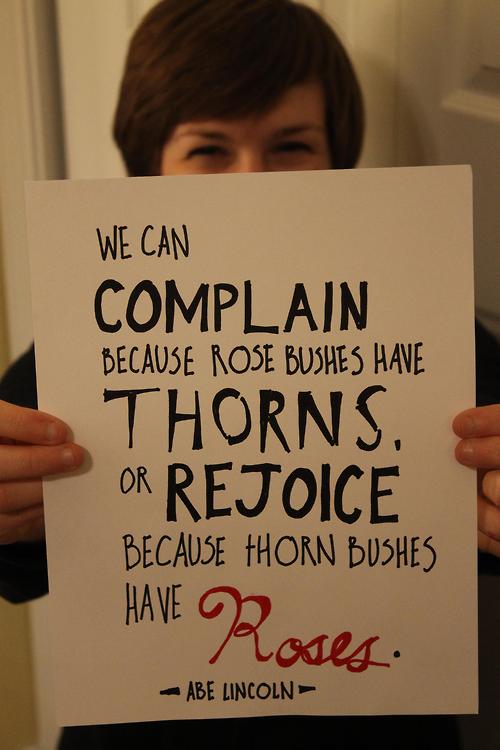 WE CAN
COMPLAIN
BECAUSE ROSE BUSHES HAVE
THORNS,
OR REJOICE
BECAUSE THORN BUSHES
HAVE Roses.
- ABE LINCOLN -